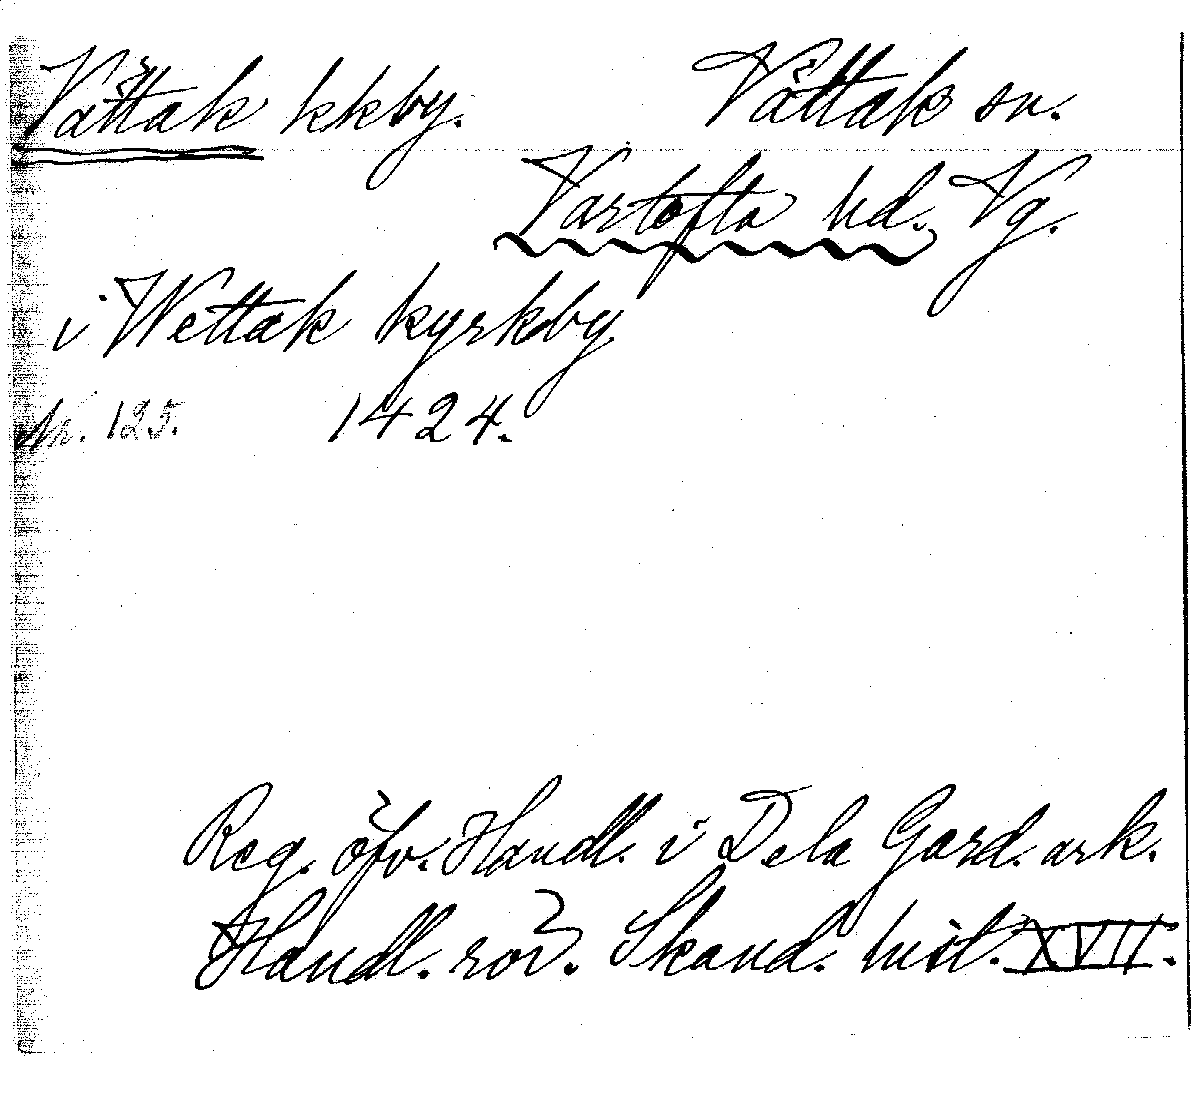 Vättak kkby. Vättak sn.
Vartofta hd. Vg.
i Wettak kyrkby
Nr. 125. 1424.
Reg. öfv. Handl. i Dela Gard. ark.
Handl. rör. Skand. hist. XVII.